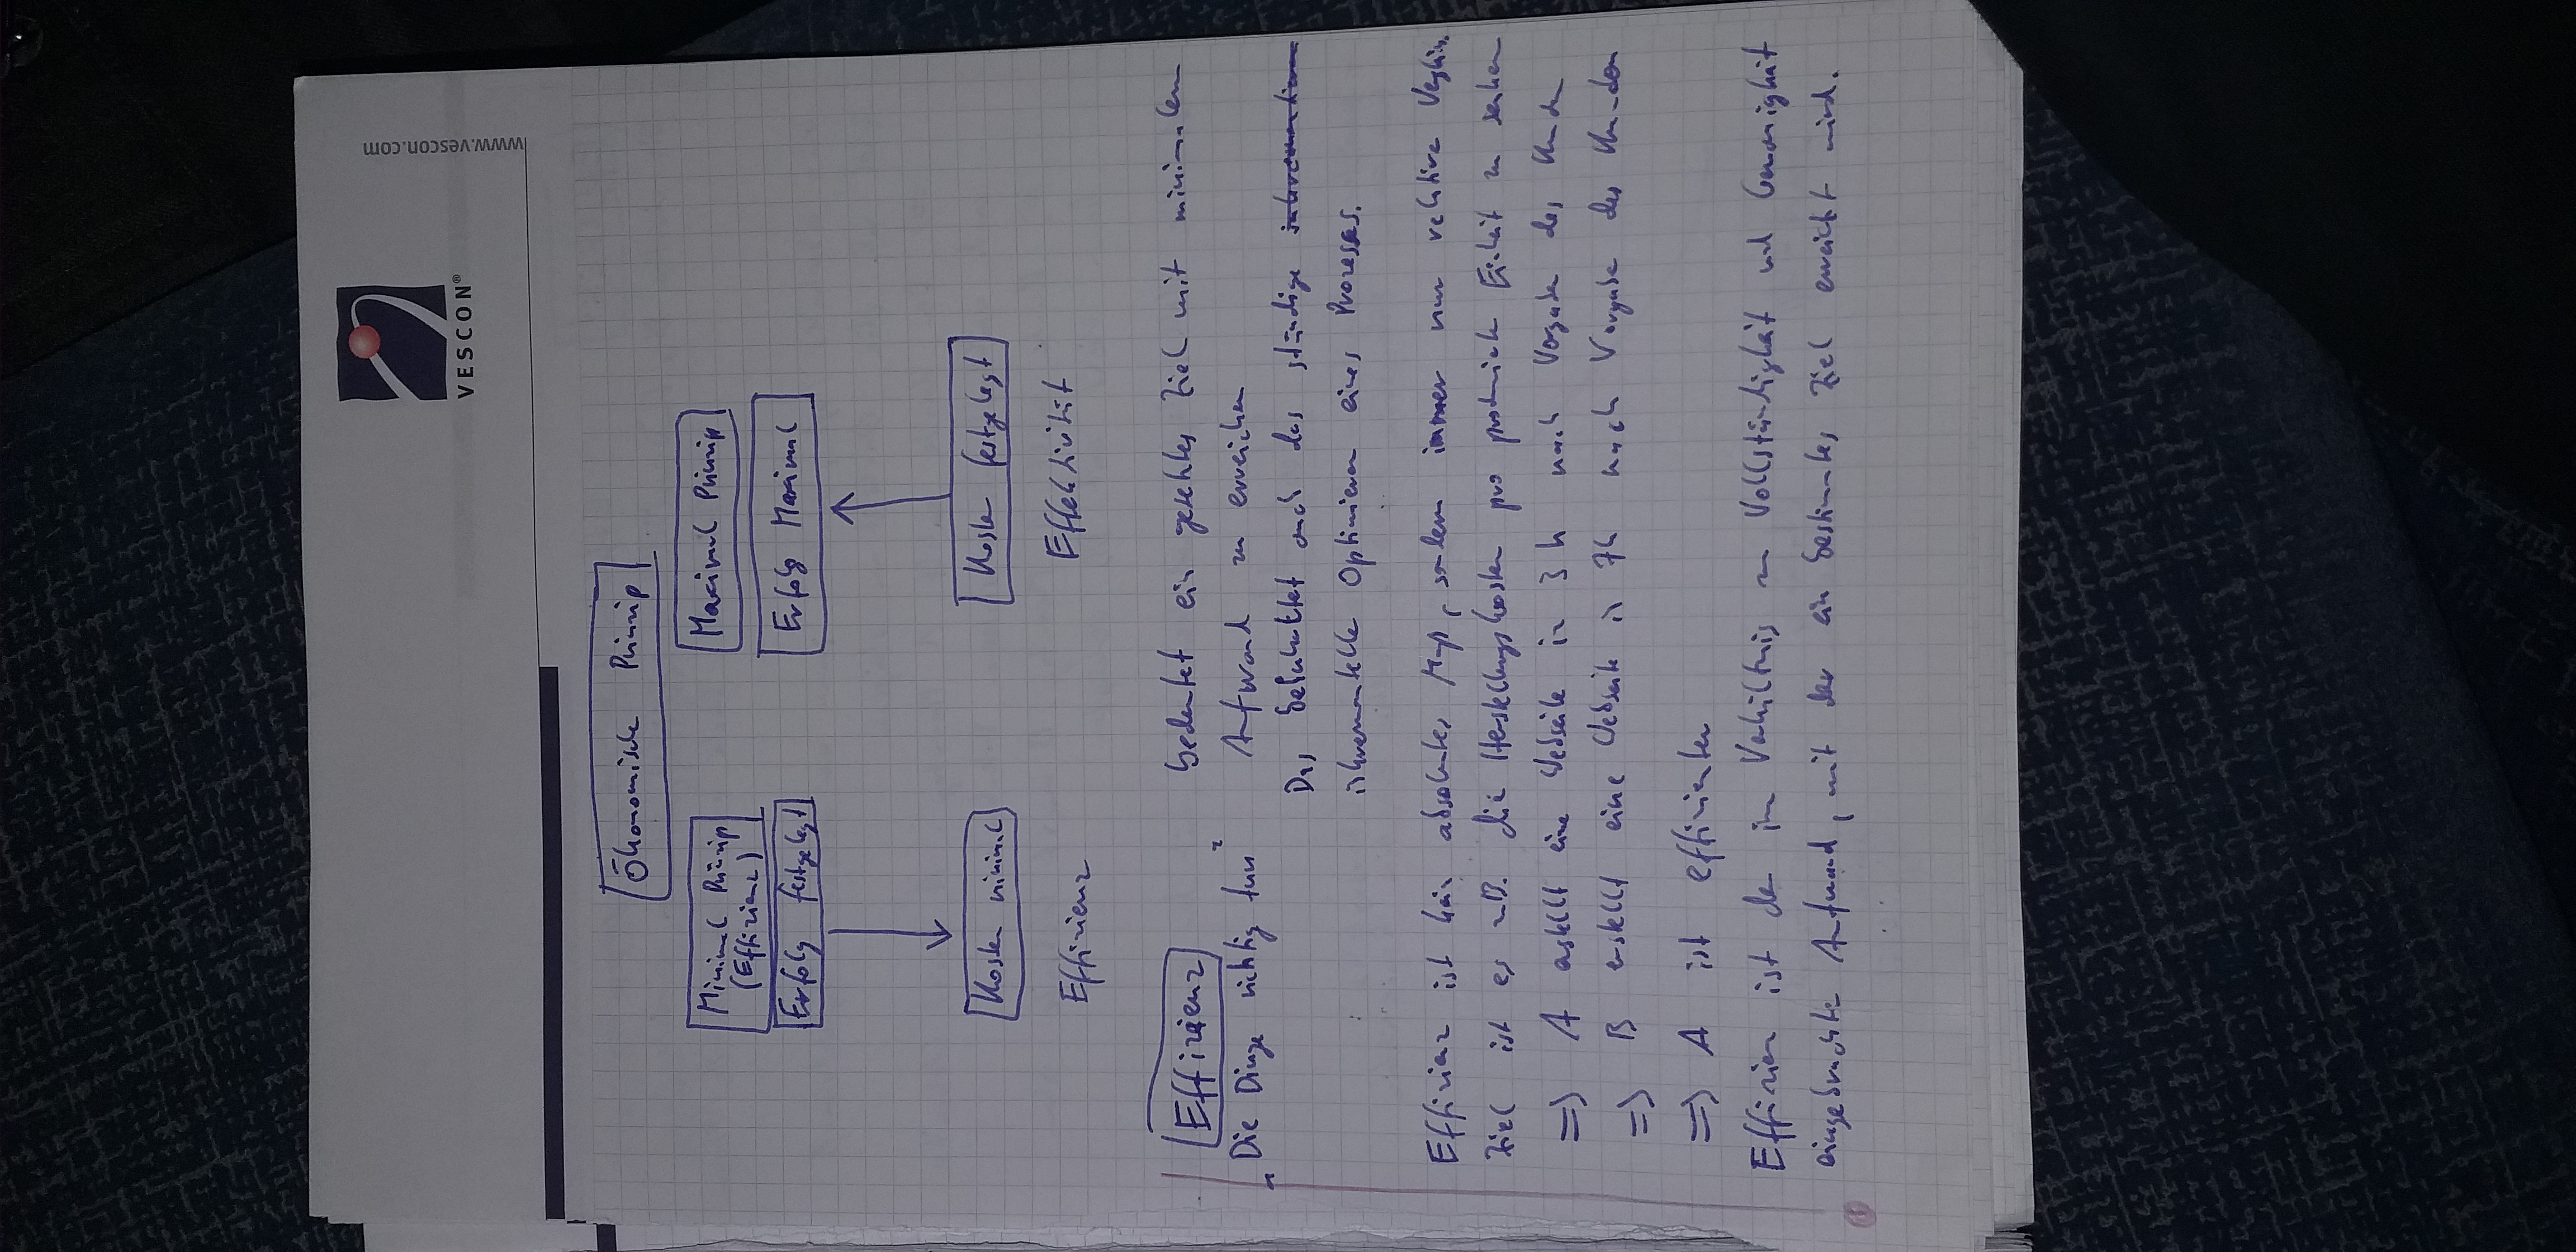 www.vescon.com
VESCON®
Ökonomische Prinzip
Minimal Prinzip
(Effizienz)
Maximal Prinzip
Erfolg festgelegt
Erfolg Maximal
Kosten minimal
Kosten festgelegt
Effizienz
Effektivität
Effizienz
bedeutet ein gesetztes Ziel mit minimalem
„Die Dinge richtig tun"
Aufwand zu erreichen
Das beinhaltet auch das ständige
inkrementelle Optimieren eines Prozesses.
Effizienz ist kein absolutes Maß, sondern immer nur relative
Ziel ist es z.B. die Herstellungskosten pro produzierte Einheit zu senken
=> A erstellt eine Webseite in 3 h nach Vorgabe des Kunden
=> B erstellt eine Webseite in 7h nach Vorgabe des Kunden
=> A ist effizienter
Effizienz ist der im Verhältnis zu Vollständigkeit und Genauigkeit
eingebrachte Aufwand, mit der ein bestimmtes Ziel erreicht wird.